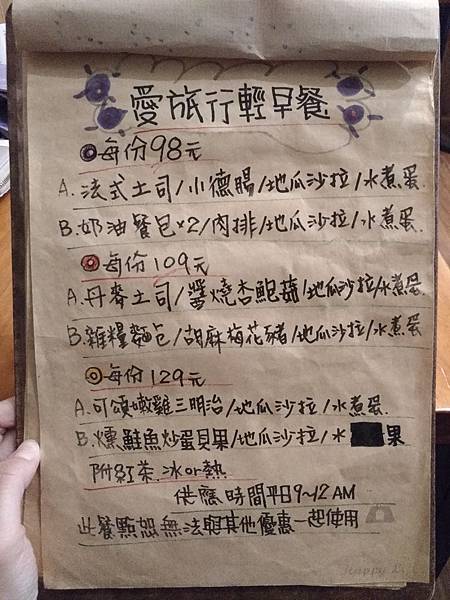 愛旅行輕早餐
每份98元
A. 法式土司/小德腸/地瓜沙拉/水煮蛋.
B. 奶油餐包x2/肉排/地瓜沙拉/水煮蛋.
每份109元
A. 丹麥土司/醬燒杏鮑菇/地瓜沙拉/水煮蛋.
B. 雜糧麵包/胡麻梅花豬/地瓜沙拉/水煮蛋
每份129元
A. 可頌嫩雞三明治/地瓜沙拉/水煮蛋.
B. 燻鮭魚炒蛋貝果/地瓜沙拉/水 果
附紅茶.冰or熱
供應時間平日9~12AM
此餐點恕無法與其他優惠一起使用